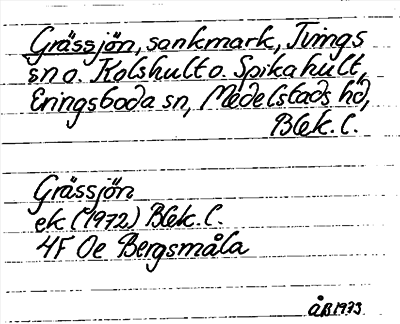 Grässjön, sankmark, Tvings
sn o. Kolshult o. Spikahult,
Eringsboda sn, Medelstads hd,
Blek. l.
Grässjön
ek (1972) Blek. l.
4F 0e Bergsmåla
ÅB 1973